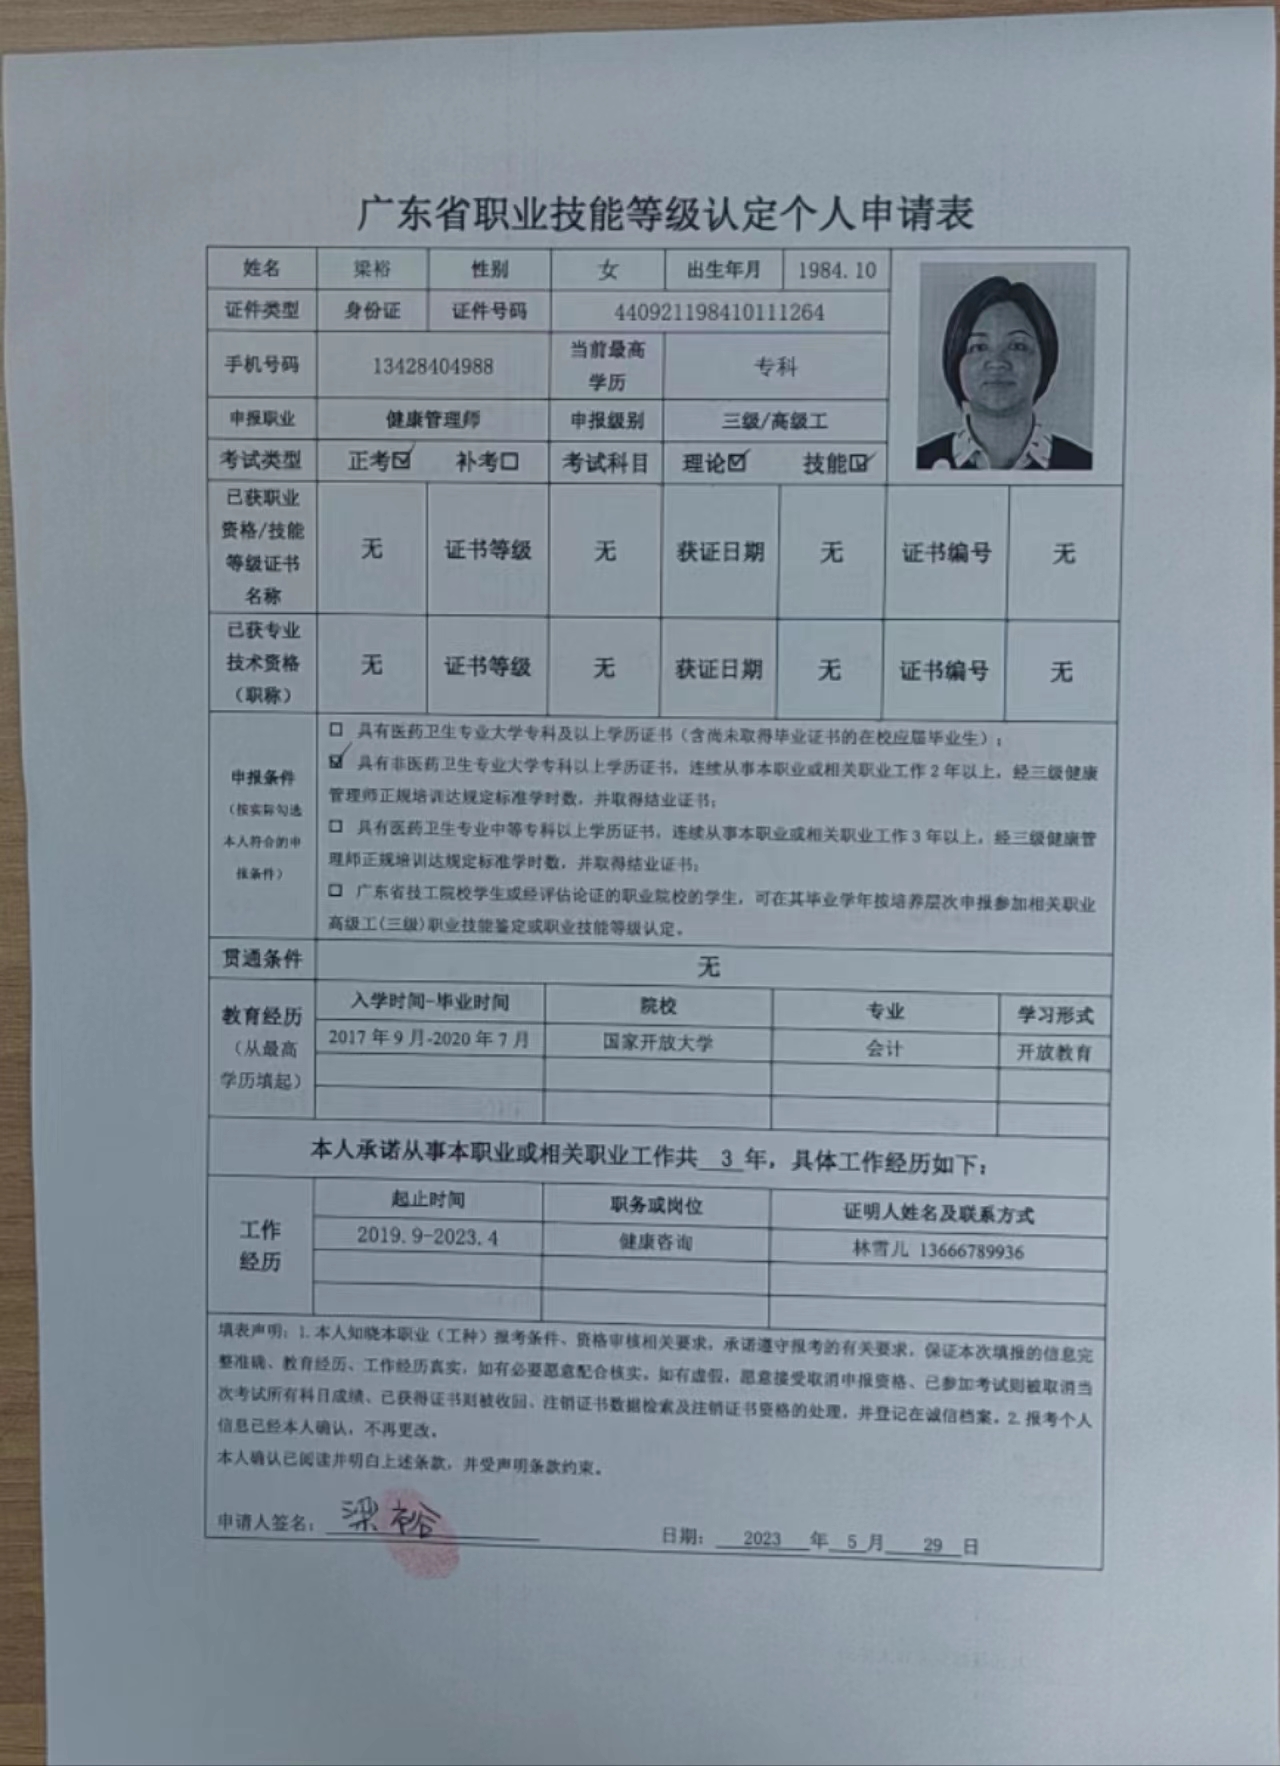 广东省职业技能等级认定个人申请表
姓名 梁裕 性别 女 出生年月 1984.10
证件类型 身份证 证件号码 440921198410111264
手机号码 13428404988 当前最高学历 专科
申报职业 健康管理师 申报级别 三级/高级工
考试类型 正考☑ 补考☐ 考试科目 理论☑ 技能☑
已获职业资格/技能等级证书名称 无 证书等级 无 获证日期 无 证书编号 无
已获专业技术资格（职称） 无 证书等级 无 获证日期 无 证书编号 无
申报条件
（按实际勾选
本人符合的申
报条件）
☐ 具有医药卫生专业大学专科及以上学历证书（含尚未取得毕业证书的在校应届毕业生）；
☑ 具有非医药卫生专业大学专科以上学历证书，连续从事本职业或相关职业工作2年以上，经三级健康
管理师正规培训达规定标准学时数，并取得结业证书；
☐ 具有医药卫生专业中等专科以上学历证书，连续从事本职业或相关职业工作3年以上，经三级健康管
理师正规培训达规定标准学时数，并取得结业证书；
☐ 广东省技工院校学生或经评估论证的职业院校的学生，可在其毕业学年按培养层次申报参加相关职业
高级工(三级)职业技能鉴定或职业技能等级认定。
贯通条件 无
教育经历
（从最高
学历填起）
入学时间-毕业时间 院校 专业 学习形式
2017年9月-2020年7月 国家开放大学 会计 开放教育
本人承诺从事本职业或相关职业工作共 3 年，具体工作经历如下：
工作
经历
起止时间 职务或岗位 证明人姓名及联系方式
2019.9-2023.4 健康咨询 林雪儿 13666789936
填表声明：1.本人知晓本职业（工种）报考条件、资格审核相关要求，承诺遵守报考的有关要求，保证本次填报的信息完
整准确、教育经历、工作经历真实，如有必要愿意配合核实。如有虚假，愿意接受取消申报资格、已参加考试则被取消当
次考试所有科目成绩、已获得证书则被收回、注销证书数据检索及注销证书资格的处理，并登记在诚信档案。2.报考个人
信息已经本人确认，不再更改。
本人确认已阅读并明白上述条款，并受声明条款约束。
申请人签名： 梁裕
日期： 2023 年 5 月 29 日